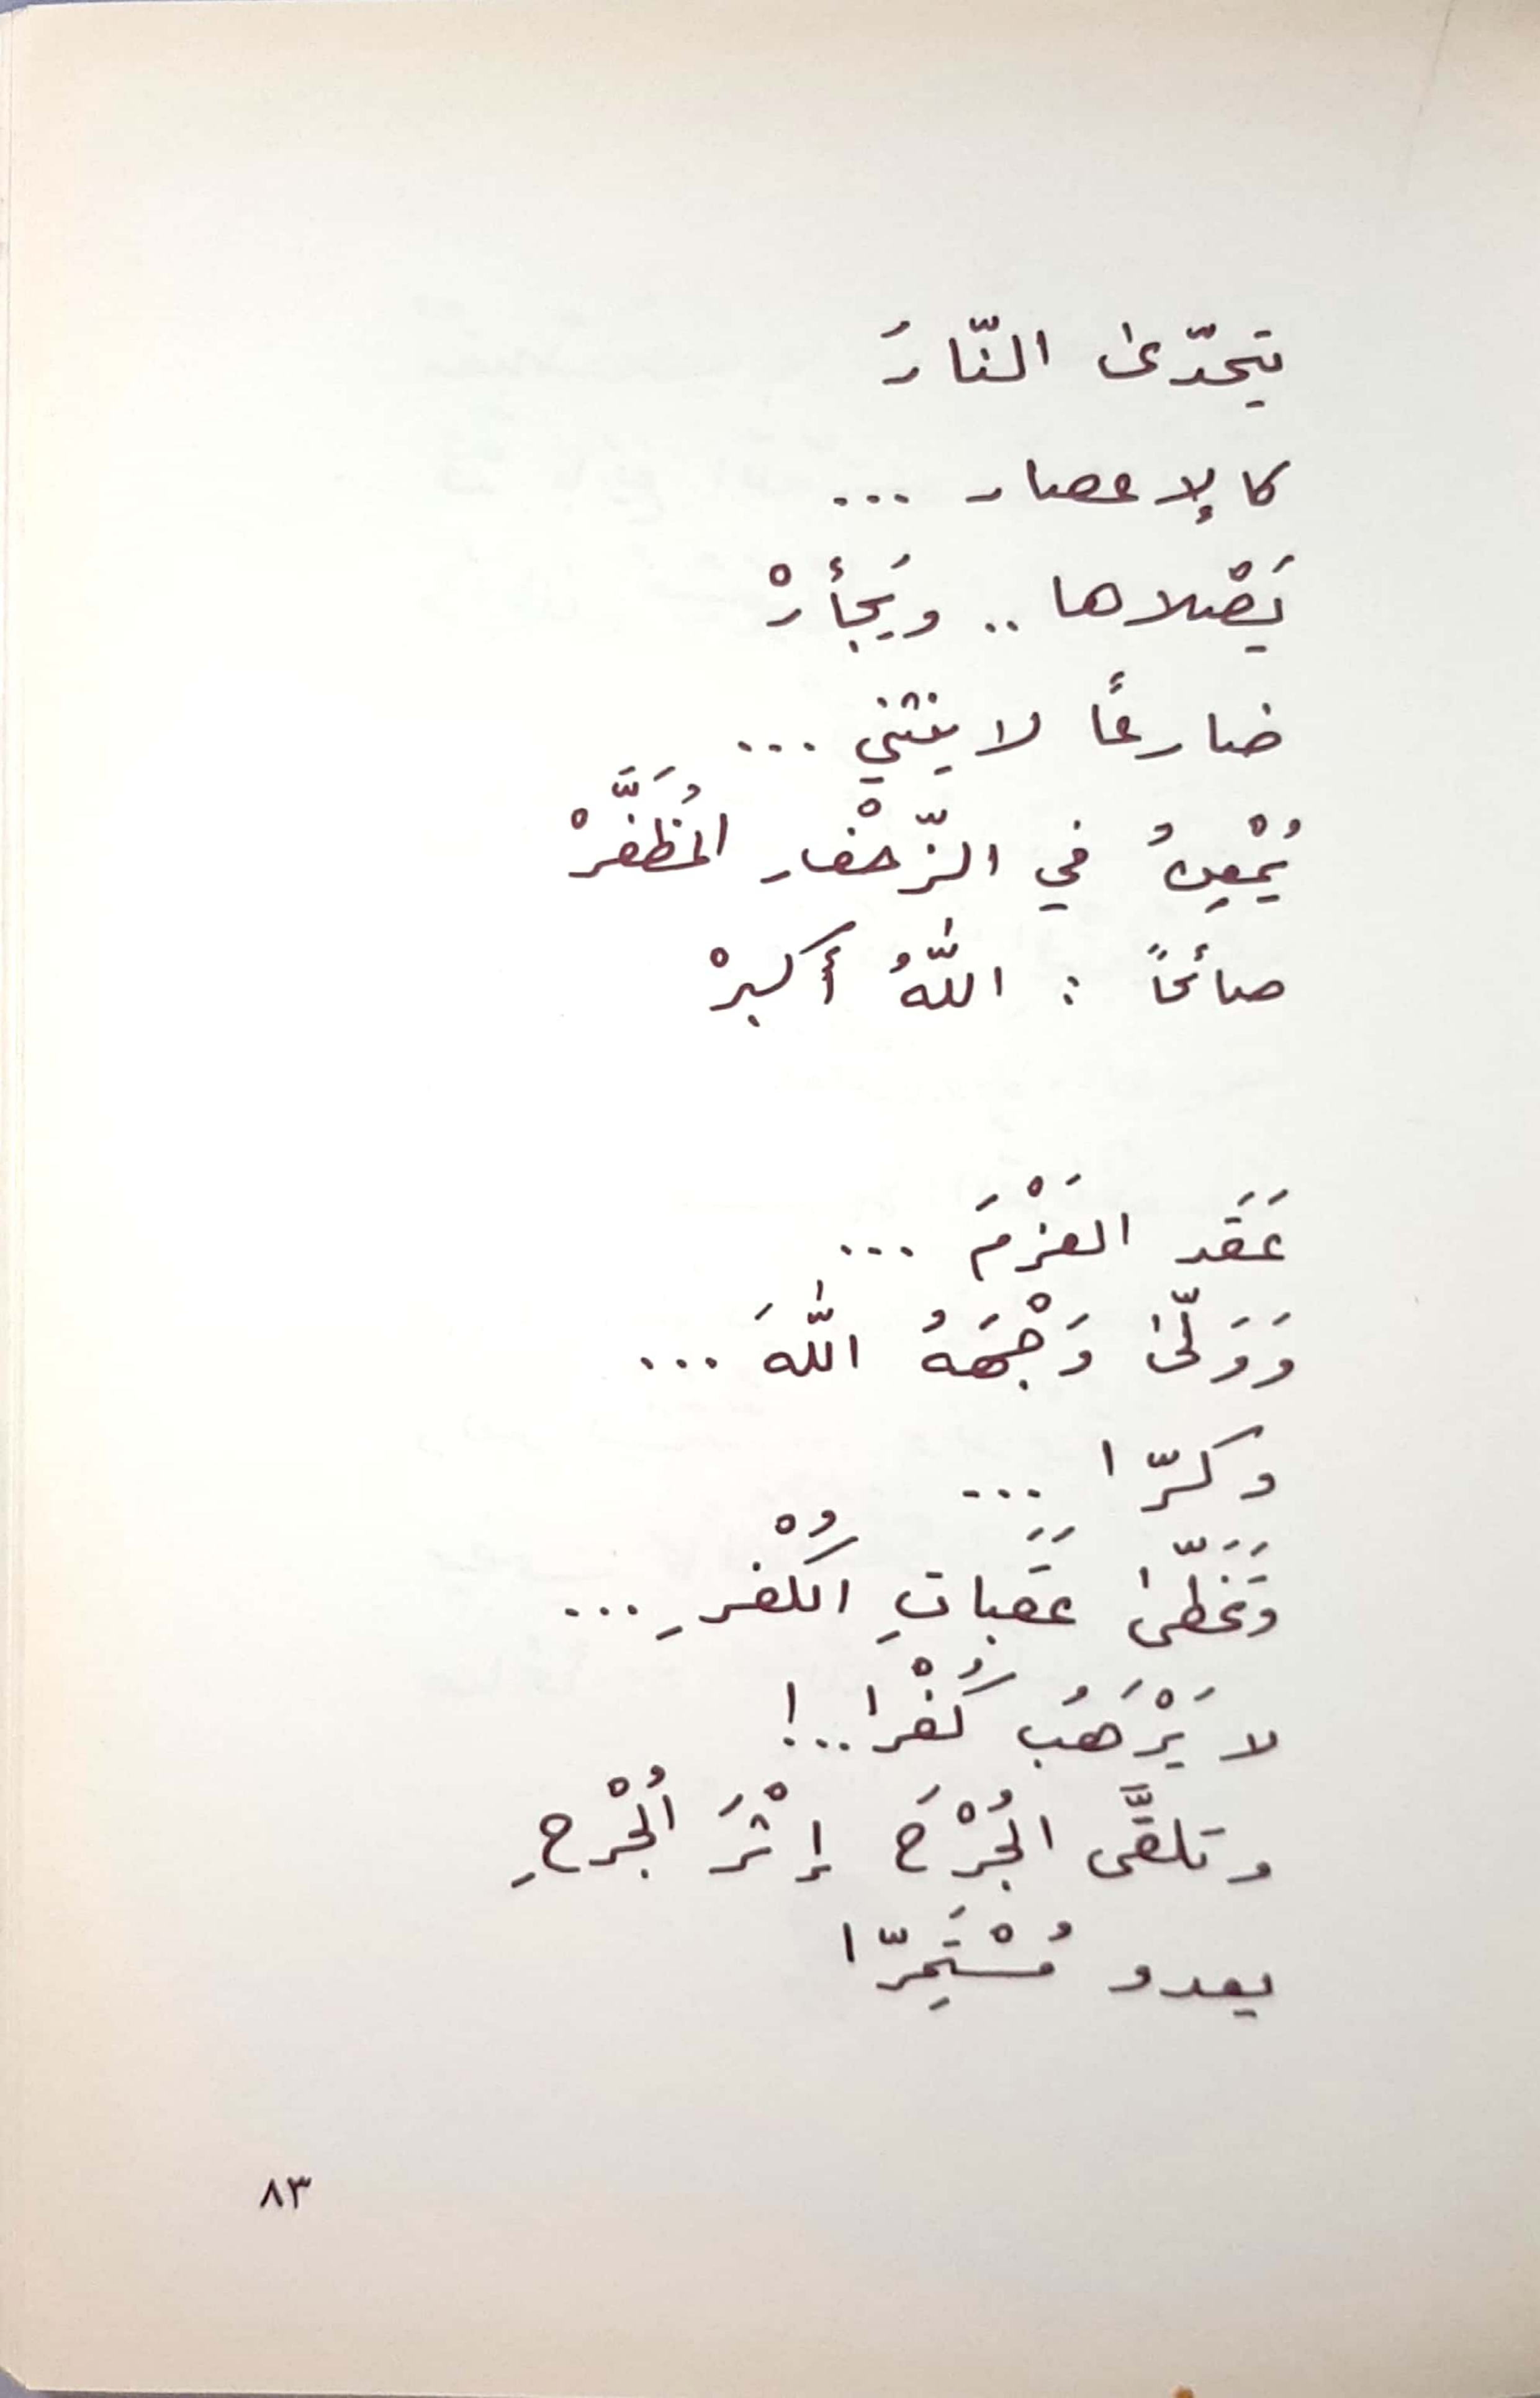 يتحدّى النّارَ
كالإعصار ...
يَصْلاها .. ويَجأرْ
ضارعًا لا ينثني ...
يُمْعِنُ في الزّحْفِ المُظَفَّرْ
صائحًا : اللّٰهُ أكبرْ
عَقَد العَزْمَ ...
وَوَلّىٰ وَجْهَهُ اللّٰهَ ...
وكرّا ...
وَتَخَطّىٰ عَقَباتِ الكُفْرِ ...
لا يَرْهَبُ كُفْرا..!
وتلقَّى الجُرْحَ إثْرَ الجُرْحِ
يعدو مُسْتَمِرّا
٨٣